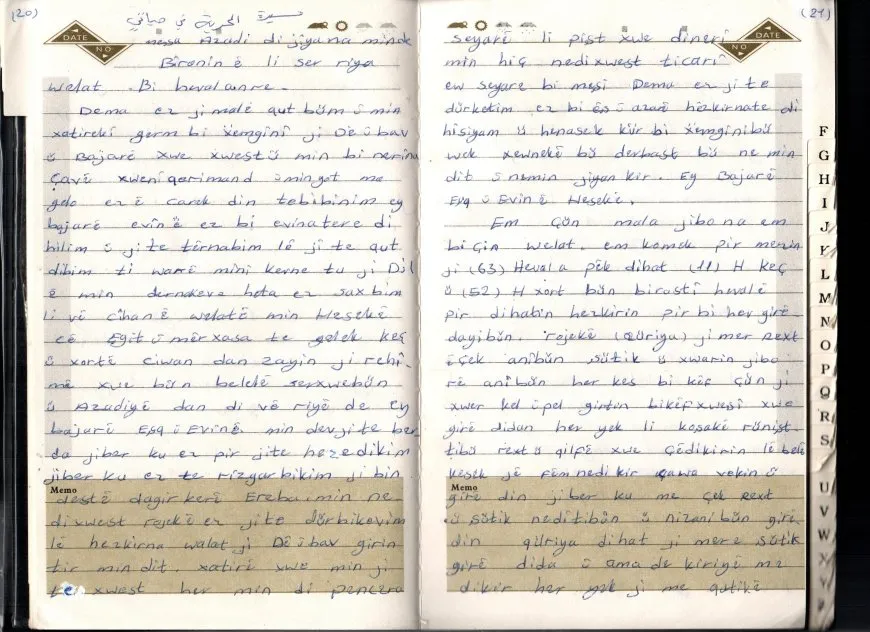 (20)
مسيرة الحرية في حياتي
DATE
NO
messa Azadi di jiyana minde
Bîronîn ê li ser riya
welat . Bi hevalanre .
Dema ez ji malê qut bûm û min
xatirekî germ bi xemgînî ji Dê û bav
û Bajarê xwe xwest û min bi nerîna
Çavê xwenî û min got ma
gelo ez ê carek din te bibînim ey
bajarê evînê ez bi evîna te re di
hîlim û ji te têr nabim lê ji te qut
dibim ti warê minî tu ji Dil
ê min dernakeve heta ez sax bim
li vê cîhanê welatê min Hesekê
cê Egît û mêrxasa te gelek keç
û xortê ciwan dan zayin ji rehî-
mê xwe bûn belelê serxwebûn
û Azadiyê dan di vê riyê de ey
bajarê Eşq û Evînê. min dev jite ber
da jiber ku ez pir jite hezedikim
jiber ku ez te rizgarbikim ji bin
Memo
destê dagirkerê Ereba û min ne-
dixwest rojekê ez jite dûrbikevim
lê hezkirna walat ji Dê û bav girin
tir min dit. xatirê xwe min ji
xwest her min di pencera
(21)
DATE
NO
seyarê li pişt xwe dinerî
min hiç nedixwest ticarî
ew seyare bi meşî Dema ez ji te
dûrketim ez bi êş û azarê hezkirnate di
hisiyam û henasek kûr bi xemginî bû
wek xewnekê bû derbast bû ne min
dit û nemin jiyan kir. Ey Bajarê
Eşq û Evînê Hesekê.
Em Çûn mala jibo na em
bi Çin welat. em komek pir mezin
ji (63) Hevala pêk dihat (11) H keç
û (52) H xort bûn birastî hevalê
pir dihatin hezkirin pir bi hev girê
dayibûn. rojekê (Qûriya) ji mer Rext
ê çek anîbûn sûtik û xwarin jibo
rê anîbûn her kes bi kêf çûn ji
xwer kel û pel girtin bi kêfxweşî xwe
girê didan her yek li koşakê rûnişt
tibû rext û qilfê xwe Çêdikirin lê belê
kesek jê fêm nedikir çawa vekin û
Memo
girê din jiber ku me çek rext
û sûtik neditibûn û nizanîbûn girê
din qûriya dihat ji mere sûtik
girê dida û ama de kiriyê me
dikir her yek ji me qutikê
F
G
H
I
J
L
M
N
O
P
Q
R
S
U
V
W
X